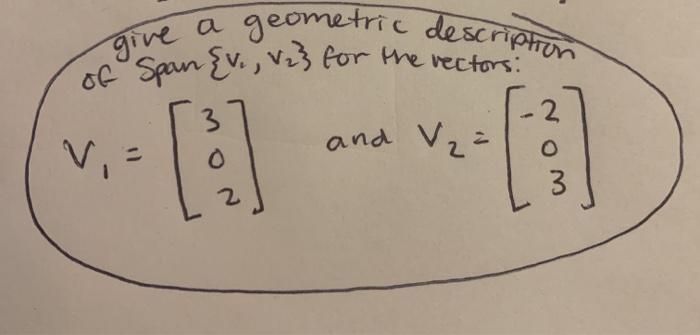 give a geometric description
of Span {v₁, v₂} for the vectors:
V₁ = [3 0 2] and V₂ = [-2 0 3]